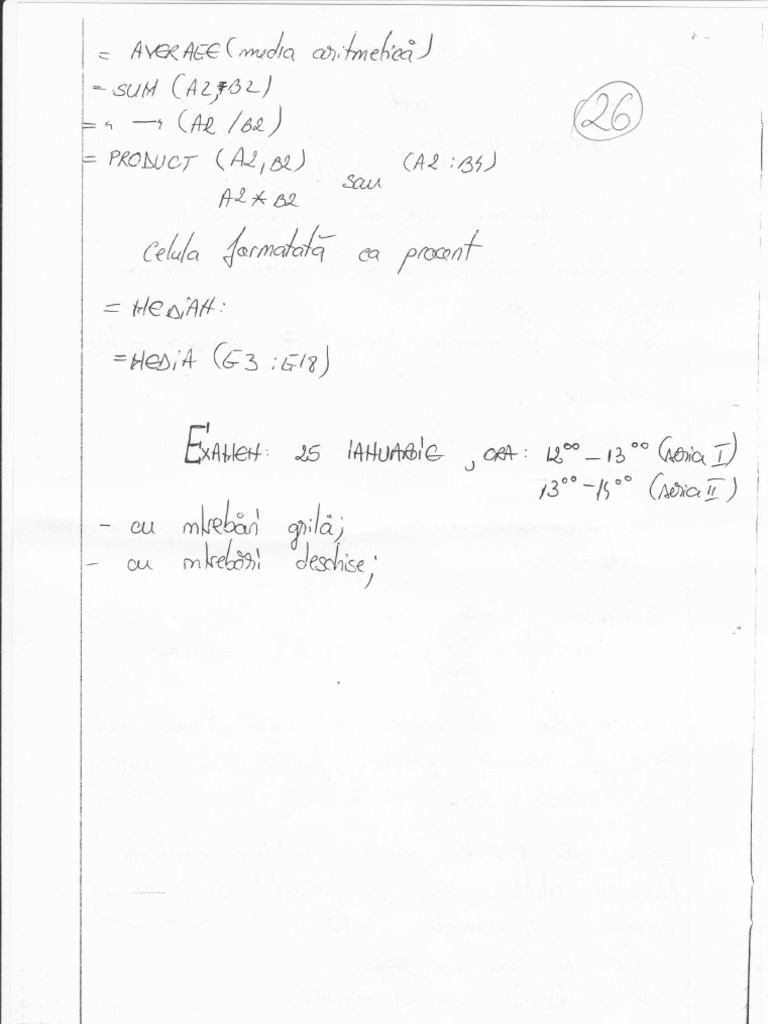 = AVERAEE (media aritmetică)
= SUM (A2,+B2)
26
= " — " (A2 / B2)
= PRODUCT (A2, B2) sau (A2 : B4)
A2 * B2
Celula formatată ca procent
= MEDiAH:
= MEDiA (G3 : G18)
EXAMEH: 25 IAHUARIE, ORA: 12⁰⁰ – 13⁰⁰ (seria I)
13⁰⁰ – 14⁰⁰ (seria II)
- cu întrebări grilă;
- cu întrebări deschise;